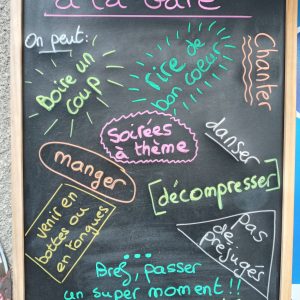 à la Gare
On peut:
Boire un
coup
rire de
bon coeur
Chanter
Soirées
à thème
danser
manger
[décompresser]
venir en
bottes ou
en tongues
pas
de
préjugés
...
Bref, passer
un super moment!!